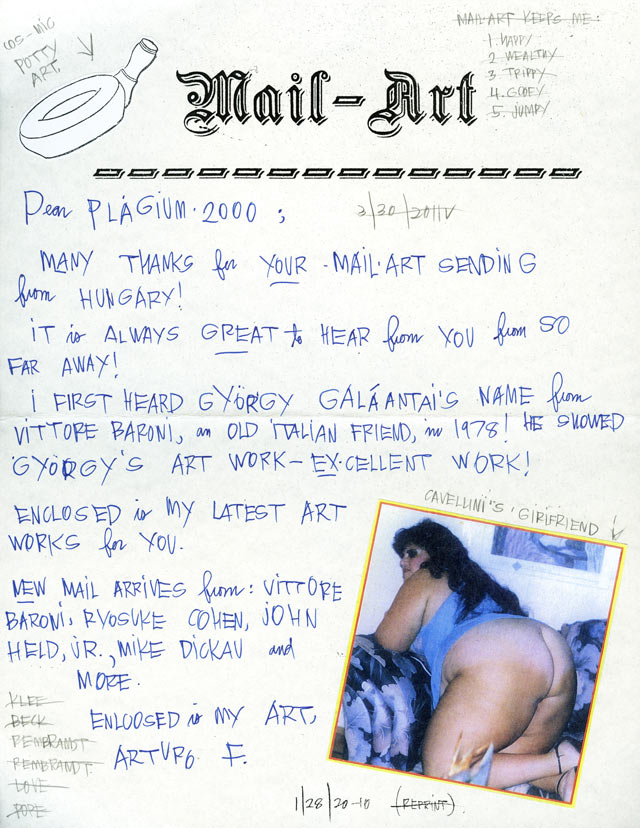 COS-MIC
POTTY
ART.
MAIL·ART KEEPS ME:
1. HAPPY
2. WEALTHY
3. TRIPPY
4. GOEY
5. JUMPY
Mail-Art
Dear PLÁGIUM·2000;
3/30/201IV
MANY THANKS for YOUR ·MAIL·ART SENDING
from HUNGARY!
iT is ALWAYS GREAT to HEAR from YOU from SO
FAR AWAY!
i FIRST HEARD GYÖRGY GALÁANTAI'S NAME from
VITTORE BARONI, an OLD ITALIAN FRIEND, in 1978! HE SHOWED
GYÖRGY'S ART WORK - EX·CELLENT WORK!
ENCLOSED is MY LATEST ART
WORKS for YOU.
CAVELLINI"S 'GIRIFRIEND
NEW MAIL ARRIVES from: VITTORE
BARONI, RYOSUKE COHEN, JOHN
HELD, JR., MIKE DICKAU and
MORE.
KLEE
BECK
REMBRANDT
REMBRANDT.
LOVE
POPE
ENLOOSED is MY ART,
ARTURO F.
1/28/20-10 (REPRINT).